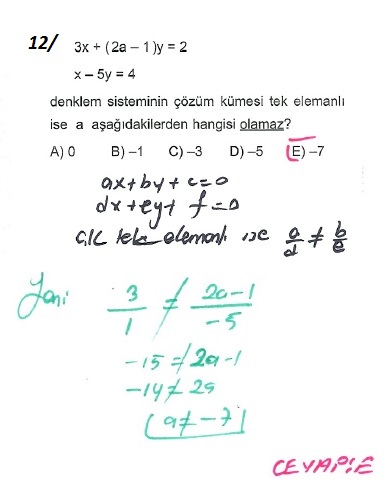 12/ 3x + (2a – 1)y = 2
x – 5y = 4
denklem sisteminin çözüm kümesi tek elemanlı
ise a aşağıdakilerden hangisi olamaz?
A) 0 B) –1 C) –3 D) –5 E) –7
ax+by+c=0
dx+ey+f=0
Ç.K tek elemanlı ise a/d ≠ b/e
Yani 3/1 ≠ 2a-1/-5
-15 ≠ 2a-1
-14 ≠ 2a
a ≠ -7
CEVAP:E